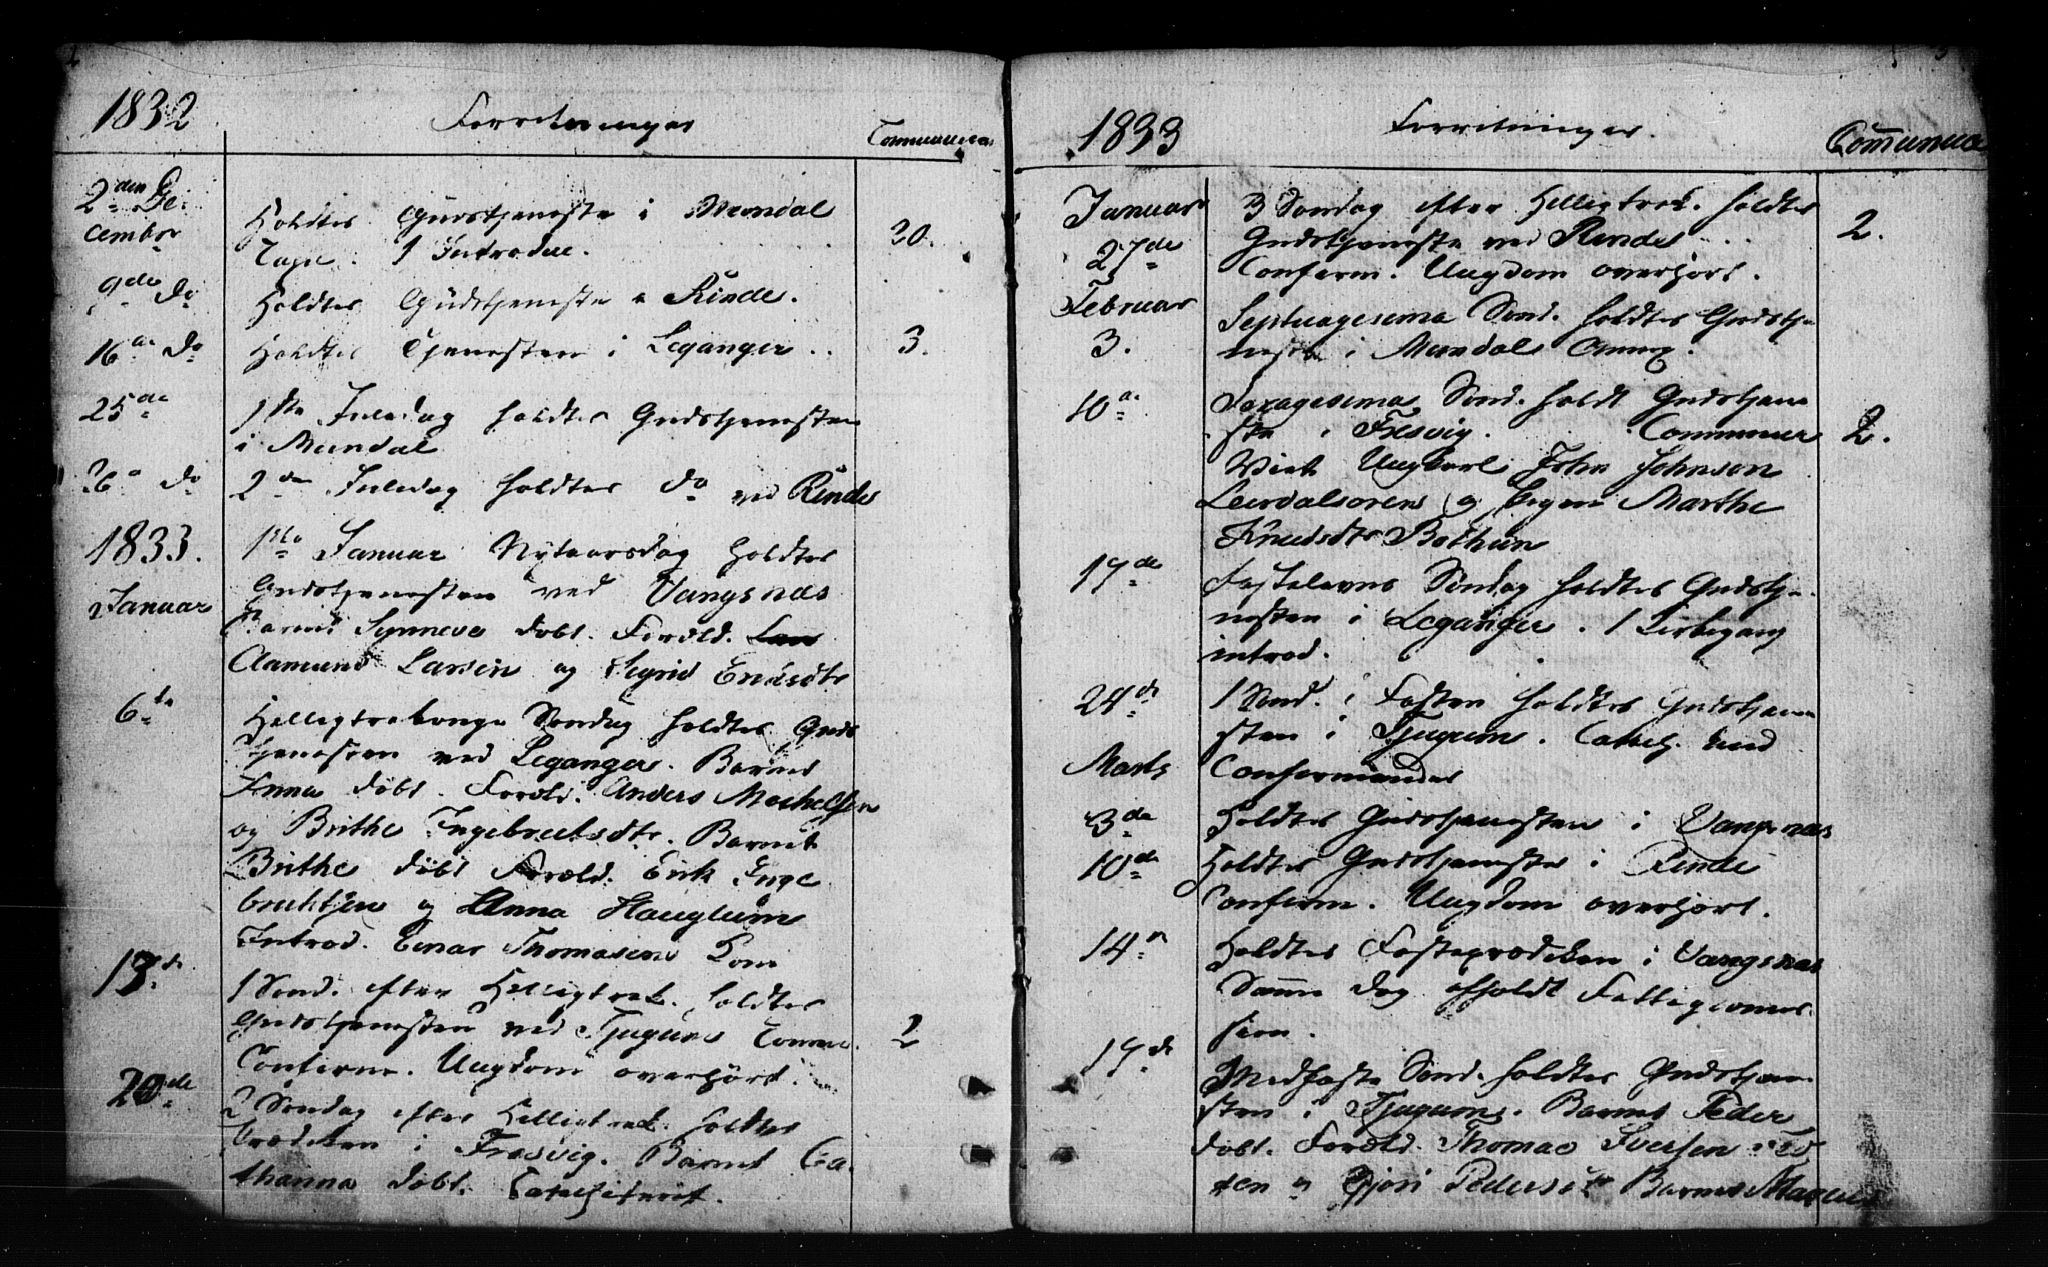 1832
Forretninger
Communican
2den De-
cember
Holdtes Gudstjeneste i Mundal
Capel. 1 Introduc.
20.
9de Do
Holdtes Gudstjeneste i Rinde.
16de Do
Holdtes Tjenesten i Leganger ..
3.
25de
1ste Juledag holdtes Gudstjenesten
i Mundal
26 Do
2den Juledag holdtes Do ved Rinde
1833.
Januar
1ste Januar Nytaarsdag holdtes
Gudstjenesten ved Vangsnæs
Barnet Synneve døbt. Foræld.
Aamund Larsen og Sigrid
6te
Helligtrekonge Søndag holdtes Guds
tjenesten ved Leganger. Barnet
Anna døbt. Foræld. Anders
og Brithe Ingebrectsdtr. Barnet
Brithe døbt Foræld. Erik Inge
brechtsen og Anna Hauglum
Introd. Einar Thomasens Kone
13de
1 Sønd. efter Helligtrek. holdtes
Gudstjenesten ved Tjugum Comm.
2
Conferm. Ungdom overhørt.
20de
2 Søndag efter Helligtrek. holdtes
Prædiken i Fresvig. Barnet Ca-
thanna døbt. Catechiseret.
1833
Forretninger.
Communica
Januar
27de
3 Søndag efter Helligtrek. holdtes
Gudstjeneste ved Rinde
2.
Conferm. Ungdom overhørt.
Februar
3.
Septuagesima Sønd. holdtes Gudstje
neste i Mundals Annex.
10de
Sexagesima Sønd. holdt Gudstjene
ste i Fresvig. Communic
2.
Viet Ungkarl John Johnsen
Leirdalsøren og Pigen Marthe
Knudsdtr Bøthun
17de
Fastelavns Søndag holdtes Gudstje-
nesten i Leganger. 1 Kirkegang
introd.
24de
1 Sønd. i Fasten holdtes Gudstjene
sten i Tjugum. Catech. med
Confermander
Marts
3de
Holdtes Gudstjenesten i Vangsnæs
10de
Holdtes Gudstjeneste i Rinde
Conferm. Ungdom overhørt.
14
Holdtes Fasteprædiken i Vangsnæs
Samme Dag afholdt Fattigcommis-
sion.
17de
Midfaste Sønd. holdtes Gudstjene-
sten i Tjugum. Barnet Peder
døbt. Foræld. Thomas Iversen
og Gjøri Pedersdtr Barnet